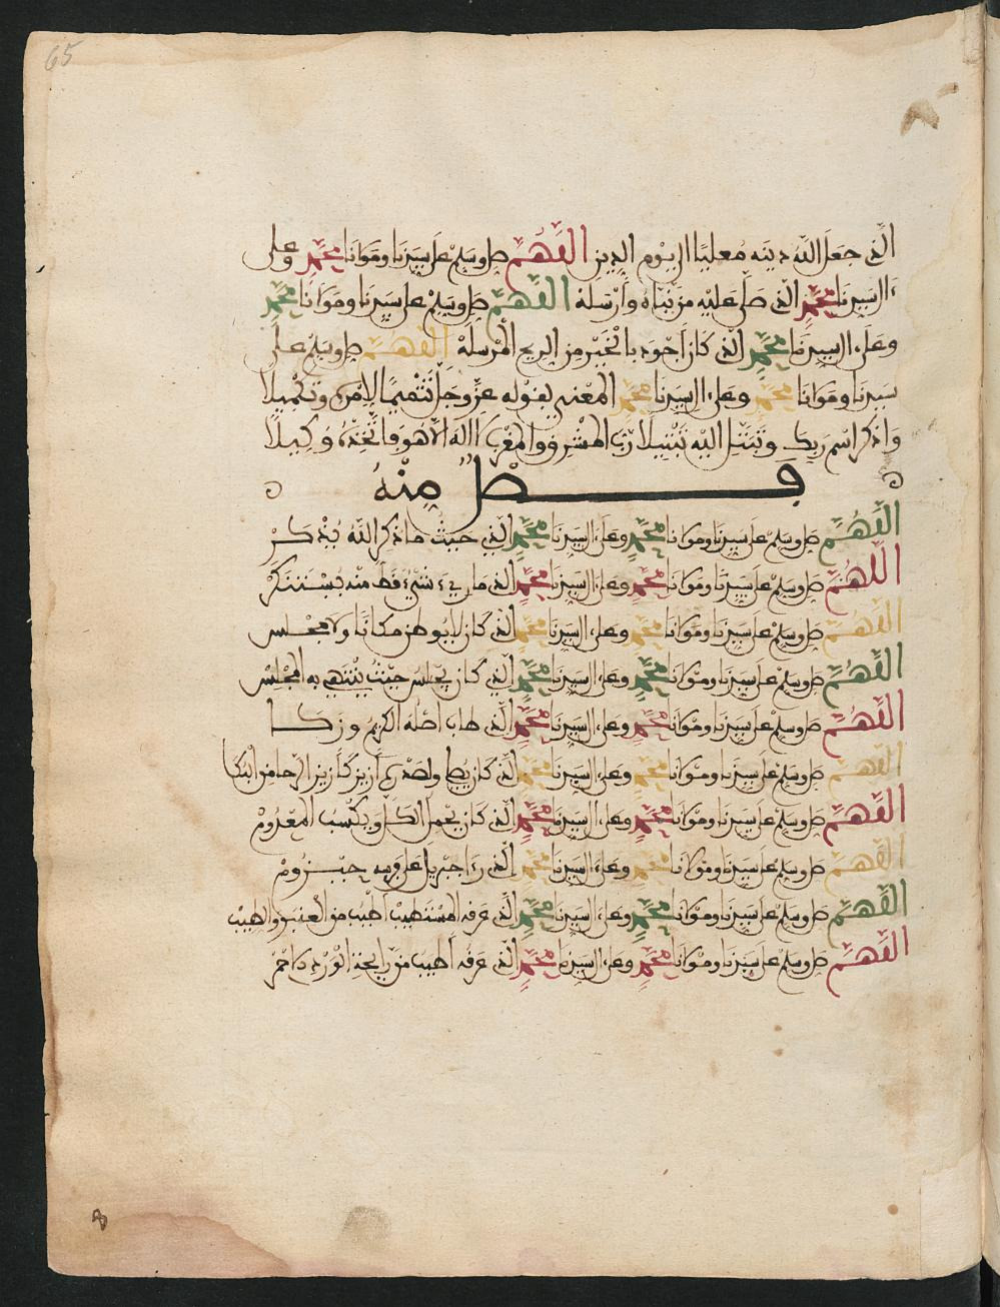 65
الذي جعل الله دينه معليا الى يوم الدين اللهم صل وسلم على سيدنا ومولانا محمد وعلى
ءال سيدنا محمد الذي صلى عليه من نباه وأرسله اللهم صل وسلم على سيدنا ومولانا محمد
وعلى ءال سيدنا محمد الذي كان أجود بالخير من الريح المرسلة اللهم صل وسلم على
سيدنا ومولانا محمد وعلى ءال سيدنا محمد المعني بقوله عز وجل تتميما لامره وتكميلا
واذكر اسم ربك وتبتل اليه تبتيلا رب المشرق والمغرب لا اله الا هو فاتخذه وكيلا
فصل منه
اللهم صل وسلم على سيدنا ومولانا محمد وعلى ءال سيدنا محمد الذي حيث ما ذكر الله يذكر
اللهم صل وسلم على سيدنا ومولانا محمد وعلى ءال سيدنا محمد الذي ما ريء شيء قط منه يستنكر
اللهم صل وسلم على سيدنا ومولانا محمد وعلى ءال سيدنا محمد الذي كان لا يوطن مكانا ولا مجلس
اللهم صل وسلم على سيدنا ومولانا محمد وعلى ءال سيدنا محمد الذي كان يجلس حيث ينتهي به المجلس
اللهم صل وسلم على سيدنا ومولانا محمد وعلى ءال سيدنا محمد الذي طاب أصله الكريم وزكا
اللهم صل وسلم على سيدنا ومولانا محمد وعلى ءال سيدنا محمد الذي كان يصلي ولصدره أزيز كأزيز الرحا من البكا
اللهم صل وسلم على سيدنا ومولانا محمد وعلى ءال سيدنا محمد الذي كان يحمل الكل ويكسب المعدوم
اللهم صل وسلم على سيدنا ومولانا محمد وعلى ءال سيدنا محمد الذي رءا جبريل على فرسه حيزوم
اللهم صل وسلم على سيدنا ومولانا محمد وعلى ءال سيدنا محمد الذي عرفه المستطيب أطيب من العنبر والطيب
اللهم صل وسلم على سيدنا ومولانا محمد وعلى ءال سيدنا محمد الذي عرفه أطيب من رايحة الورد